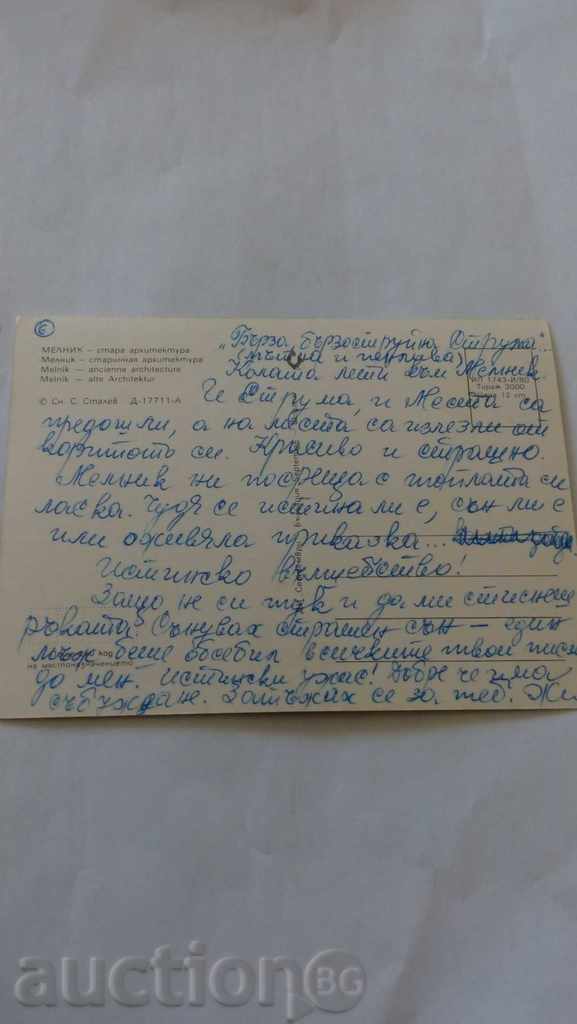 6
МЕЛНИК – стара архитектура
Мелник – старинная архитектура
Melnik – ancienne architecture
Melnik – alte Architektur
© Сн. С. Сталев Д-17711-А
ИЛ 1743-И/80
Тираж 3000
12 cm
„Бърза, бързоструйна Струма..."
(мътна и пенлива)
Колата лети към Мелник
Че Струма, и Места са
придошли, а на места са излезли от
коритото си. Красиво и страшно.
Мелник ни посреща с топлата си
ласка. Чудя се истина ли е, сън ли е
или оживяла приказка...
Истинско вълшебство!
Защо не си тук и да ми стиснеш
ръката? Сънувах страшен сън – един
беше обсебил всичките твои писма
до мен. Истински ужас! Добре че има
събуждане. Затъжах се за теб.
код
на местоназначението
auctionBG